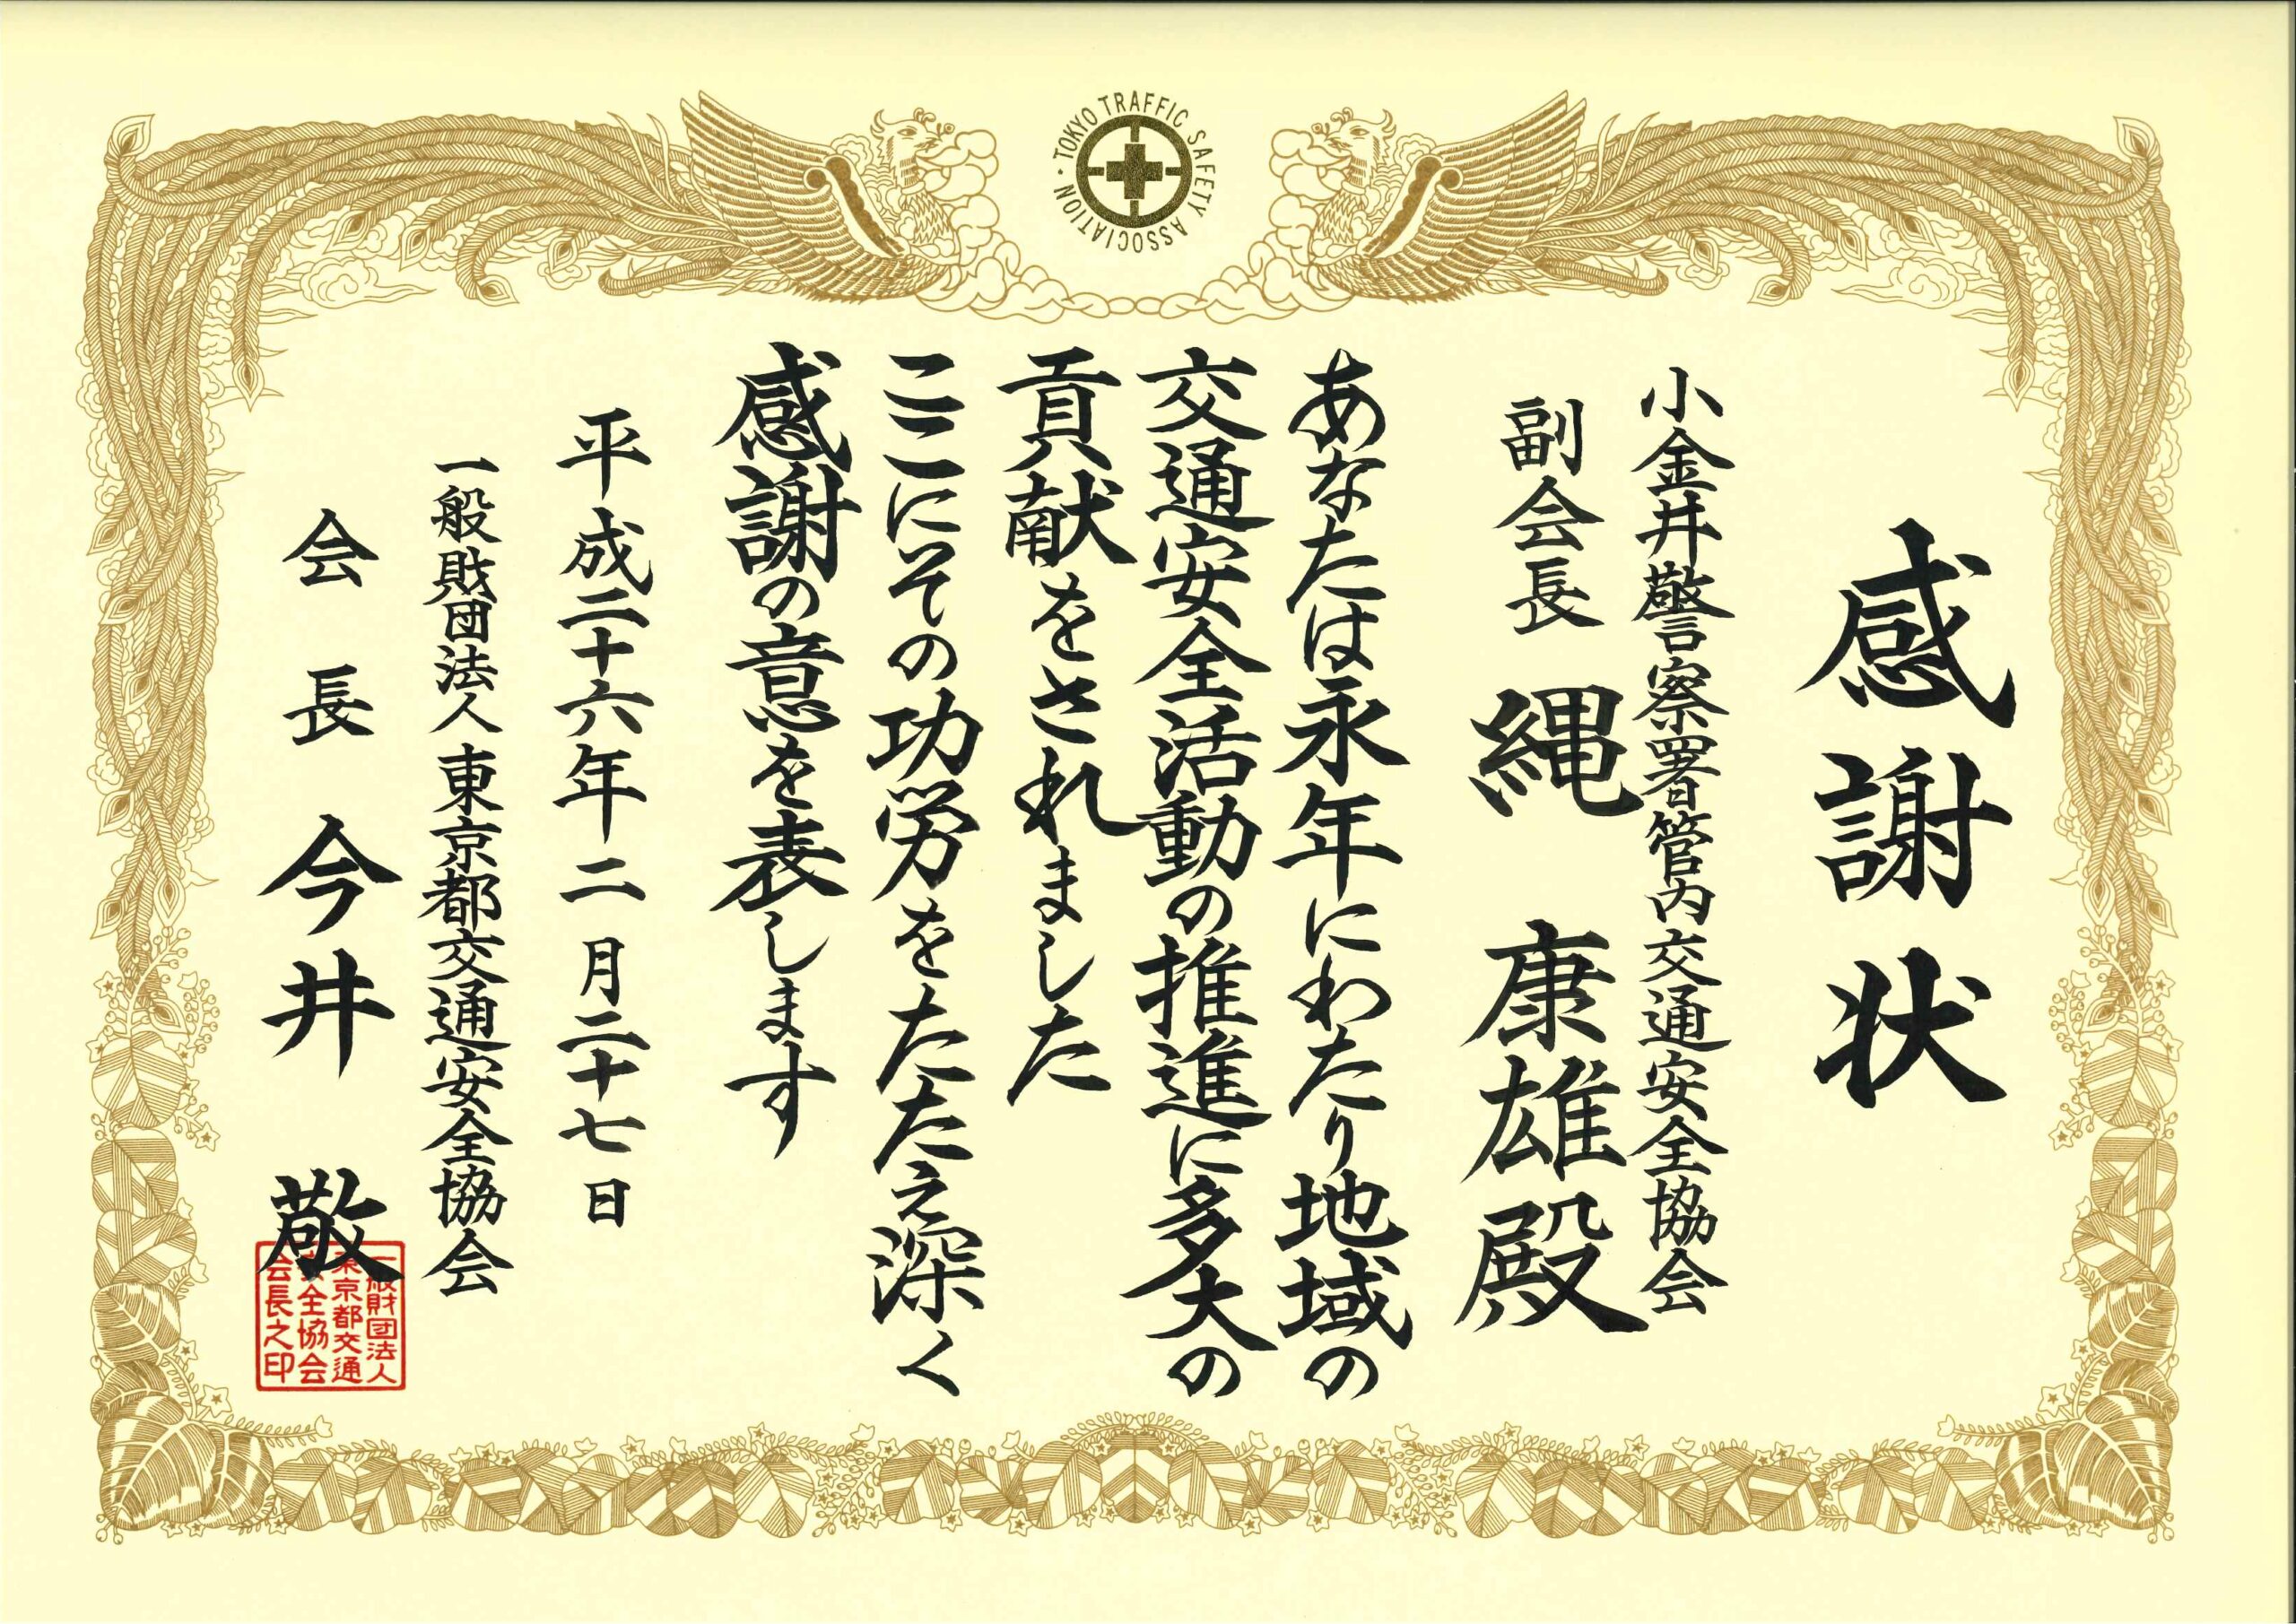 TOKYO TRAFFIC SAFETY ASSOCIATION
感謝状
小金井警察署管内交通安全協会
副会長 縄 康雄殿
あなたは永年にわたり地域の
交通安全活動の推進に多大の
貢献をされました
ここにその功労をたたえ深く
感謝の意を表します
平成二十六年二月二十七日
一般財団法人東京都交通安全協会
会長 今井 敬
一般財団法人
東京都交通
安全協会
会長之印